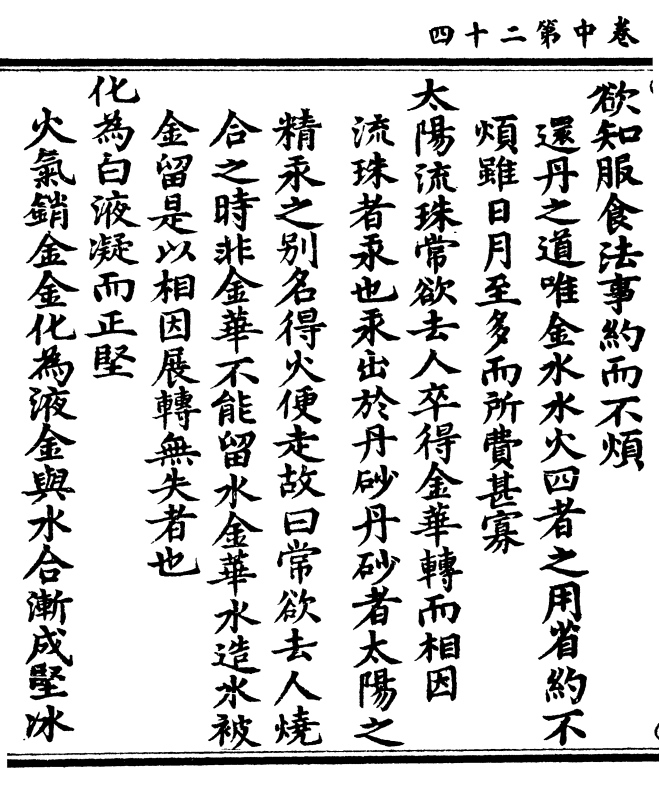 卷中第二十四
欲知服食法事約而不煩
還丹之道唯金水水火四者之用省約不
煩雖日月至多而所費甚寡
太陽流珠常欲去人卒得金華轉而相因
流珠者汞也汞出於丹砂丹砂者太陽之
精汞之別名得火便走故曰常欲去人燒
合之時非金華不能留水金華水造水被
金留是以相因展轉無失者也
化為白液凝而正堅
火氣銷金金化為液金與水合漸成堅冰